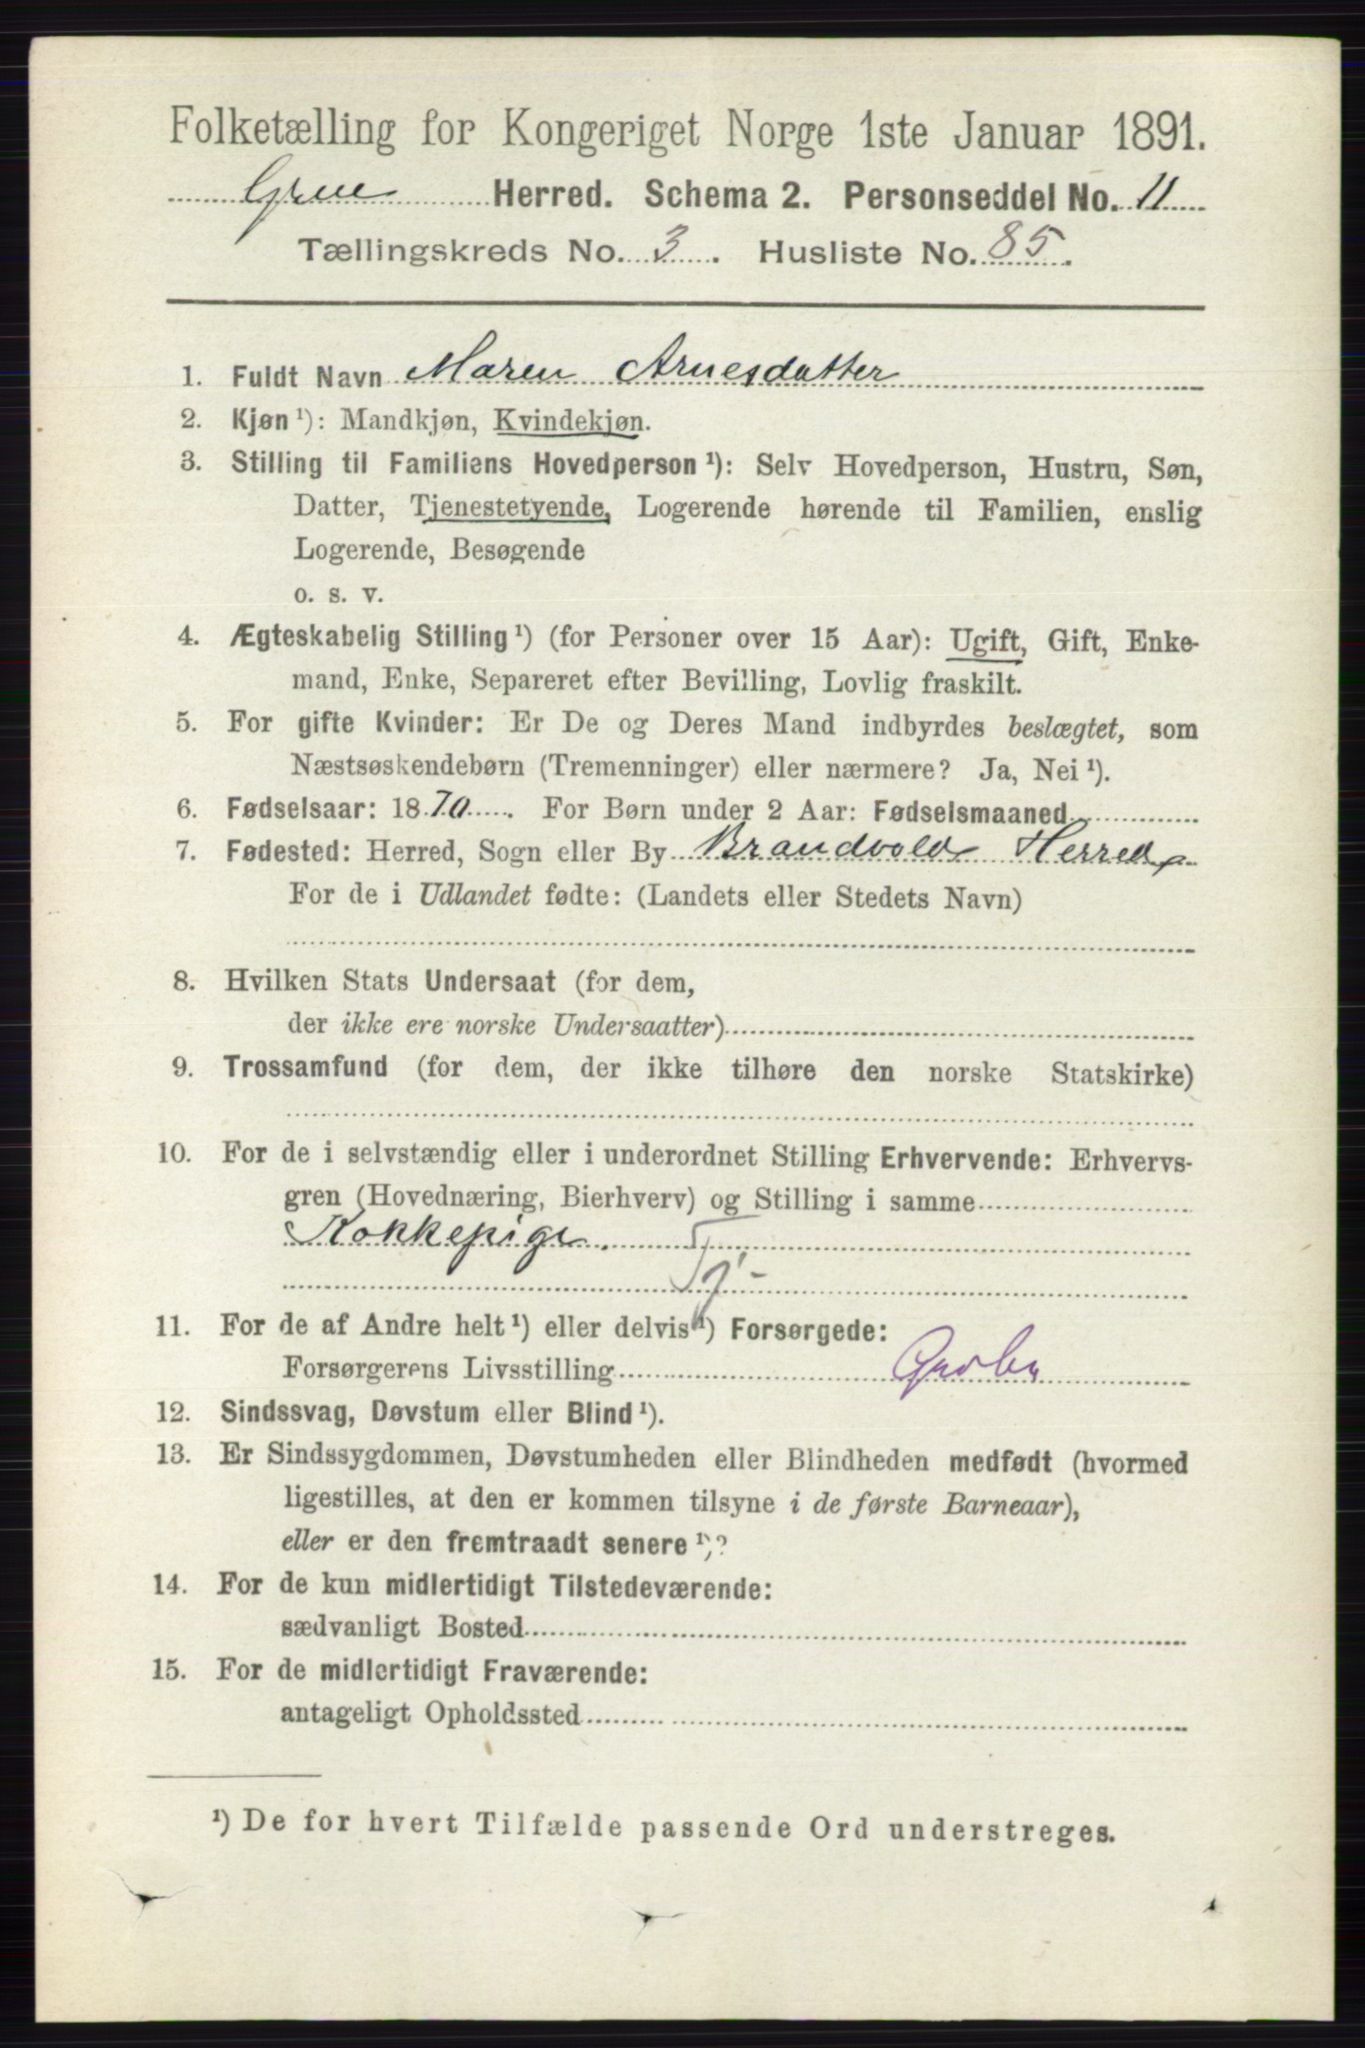 Folketælling for Kongeriget Norge 1ste Januar 1891.
Grue Herred. Schema 2. Personseddel No. 11
Tællingskreds No. 3. Husliste No. 85.
1. Fuldt Navn Maren Arnesdatter
2. Kjøn ¹): Mandkjøn, Kvindekjøn.
3. Stilling til Familiens Hovedperson ¹): Selv Hovedperson, Hustru, Søn,
Datter, Tjenestetyende, Logerende hørende til Familien, enslig
Logerende, Besøgende
o. s. v.
4. Ægteskabelig Stilling ¹) (for Personer over 15 Aar): Ugift, Gift, Enke-
mand, Enke, Separeret efter Bevilling, Lovlig fraskilt.
5. For gifte Kvinder: Er De og Deres Mand indbyrdes beslægtet, som
Næstsøskendebørn (Tremenninger) eller nærmere? Ja, Nei ¹).
6. Fødselsaar: 1870. For Børn under 2 Aar: Fødselsmaaned
7. Fødested: Herred, Sogn eller By Brandvold Herred
For de i Udlandet fødte: (Landets eller Stedets Navn)
8. Hvilken Stats Undersaat (for dem,
der ikke ere norske Undersaatter)
9. Trossamfund (for dem, der ikke tilhøre den norske Statskirke)
10. For de i selvstændig eller i underordnet Stilling Erhvervende: Erhvervs-
gren (Hovednæring, Bierhverv) og Stilling i samme
Kokkepige. Tj.-
11. For de af Andre helt ¹) eller delvis ¹) Forsørgede:
Forsørgerens Livsstilling
12. Sindssvag, Døvstum eller Blind ¹).
13. Er Sindssygdommen, Døvstumheden eller Blindheden medfødt (hvormed
ligestilles, at den er kommen tilsyne i de første Barneaar),
eller er den fremtraadt senere ¹)?
14. For de kun midlertidigt Tilstedeværende:
sædvanligt Bosted
15. For de midlertidigt Fraværende:
antageligt Opholdssted
¹) De for hvert Tilfælde passende Ord understreges.